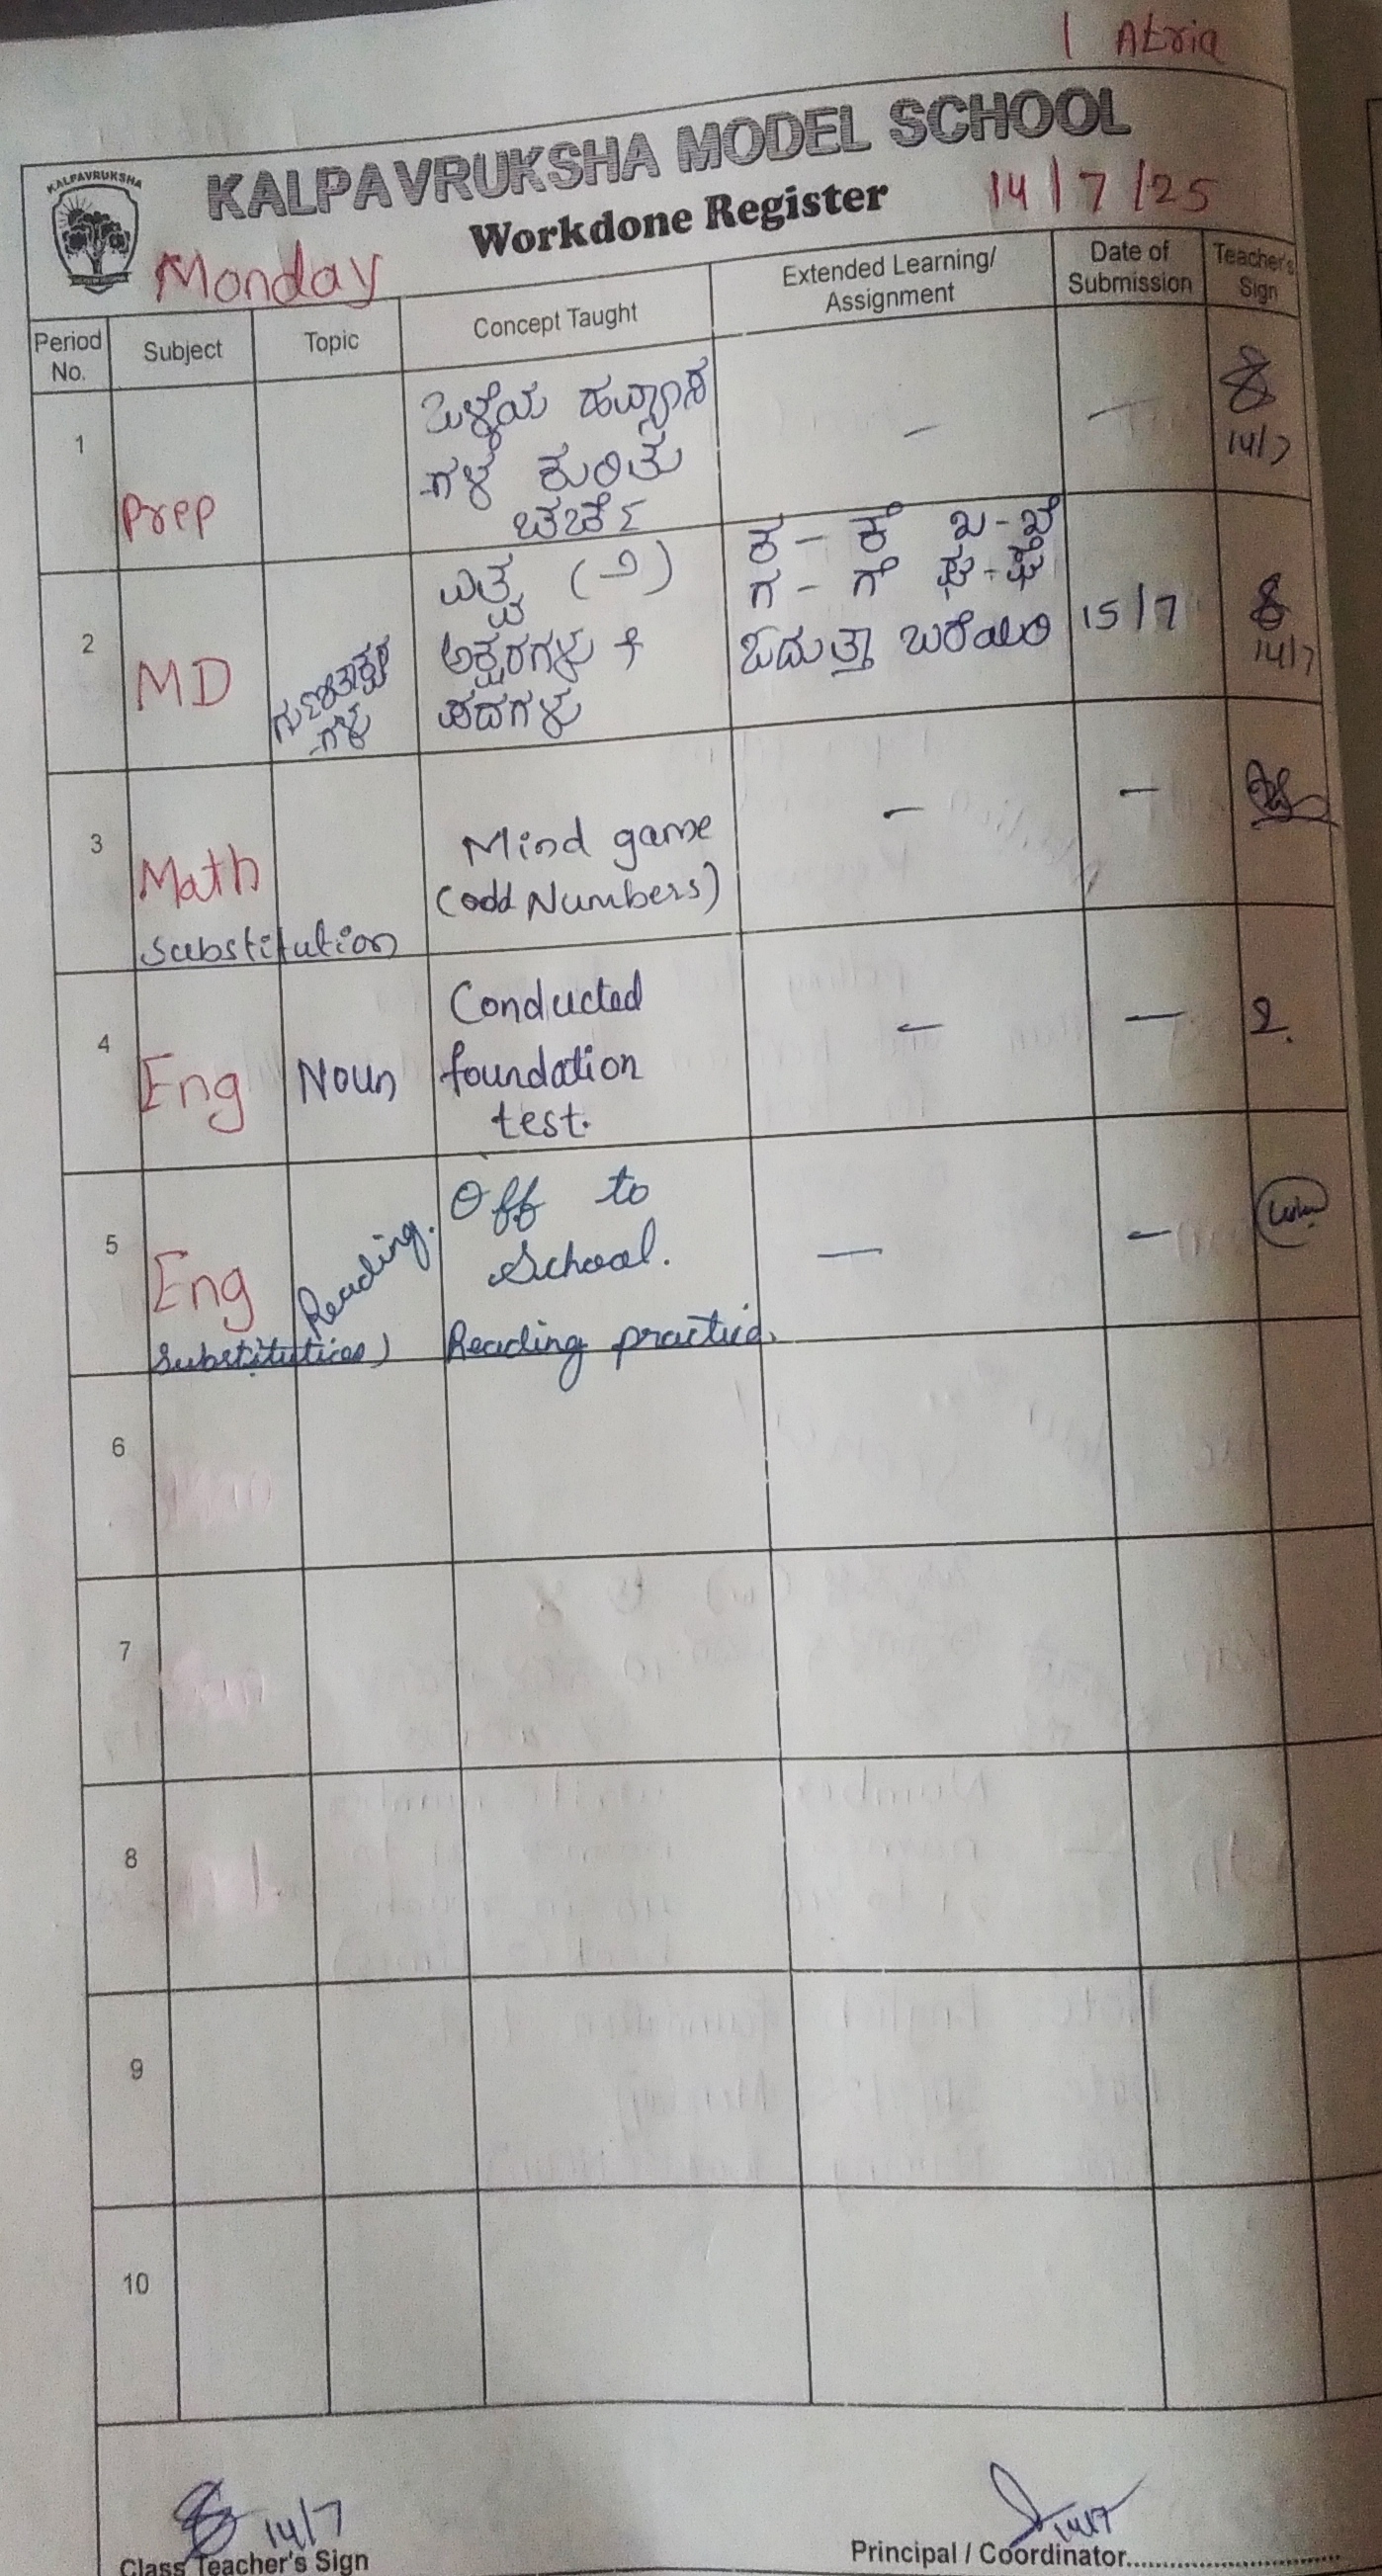 1 Atria
KALPAVRUKSHA MODEL SCHOOL
KALPAVRUKSHA
Workdone Register
14/7/25
Monday
Period No.
Subject
Topic
Concept Taught
Extended Learning/ Assignment
Date of Submission
Teacher's Sign
1
Prep
ಒಳ್ಳೆಯ ಹವ್ಯಾಸ
-ಗಳ ಕುರಿತು
ಚರ್ಚೆ
–
–
14/7
2
MD
ಗುಣಿತಾಕ್ಷರ
-ಗಳು
ಎತ್ವ
ಅಕ್ಷರಗಳು +
ಪದಗಳು
ಕ - ಕೆ ಖ - ಖೆ
ಗ - ಗೆ ಘ - ಘೆ
ಓದುತ್ತಾ ಬರೆಯಿರಿ
15/7
14/7
3
Math
substitution
Mind game
(odd Numbers)
–
–
4
Eng
Noun
Conducted
foundation
test.
–
–
2.
5
Eng
Substitution)
Reading.
Off to
School.
Reading practice.
–
–
6
7
8
9
10
14/7
Class Teacher's Sign
14/7
Principal / Coordinator